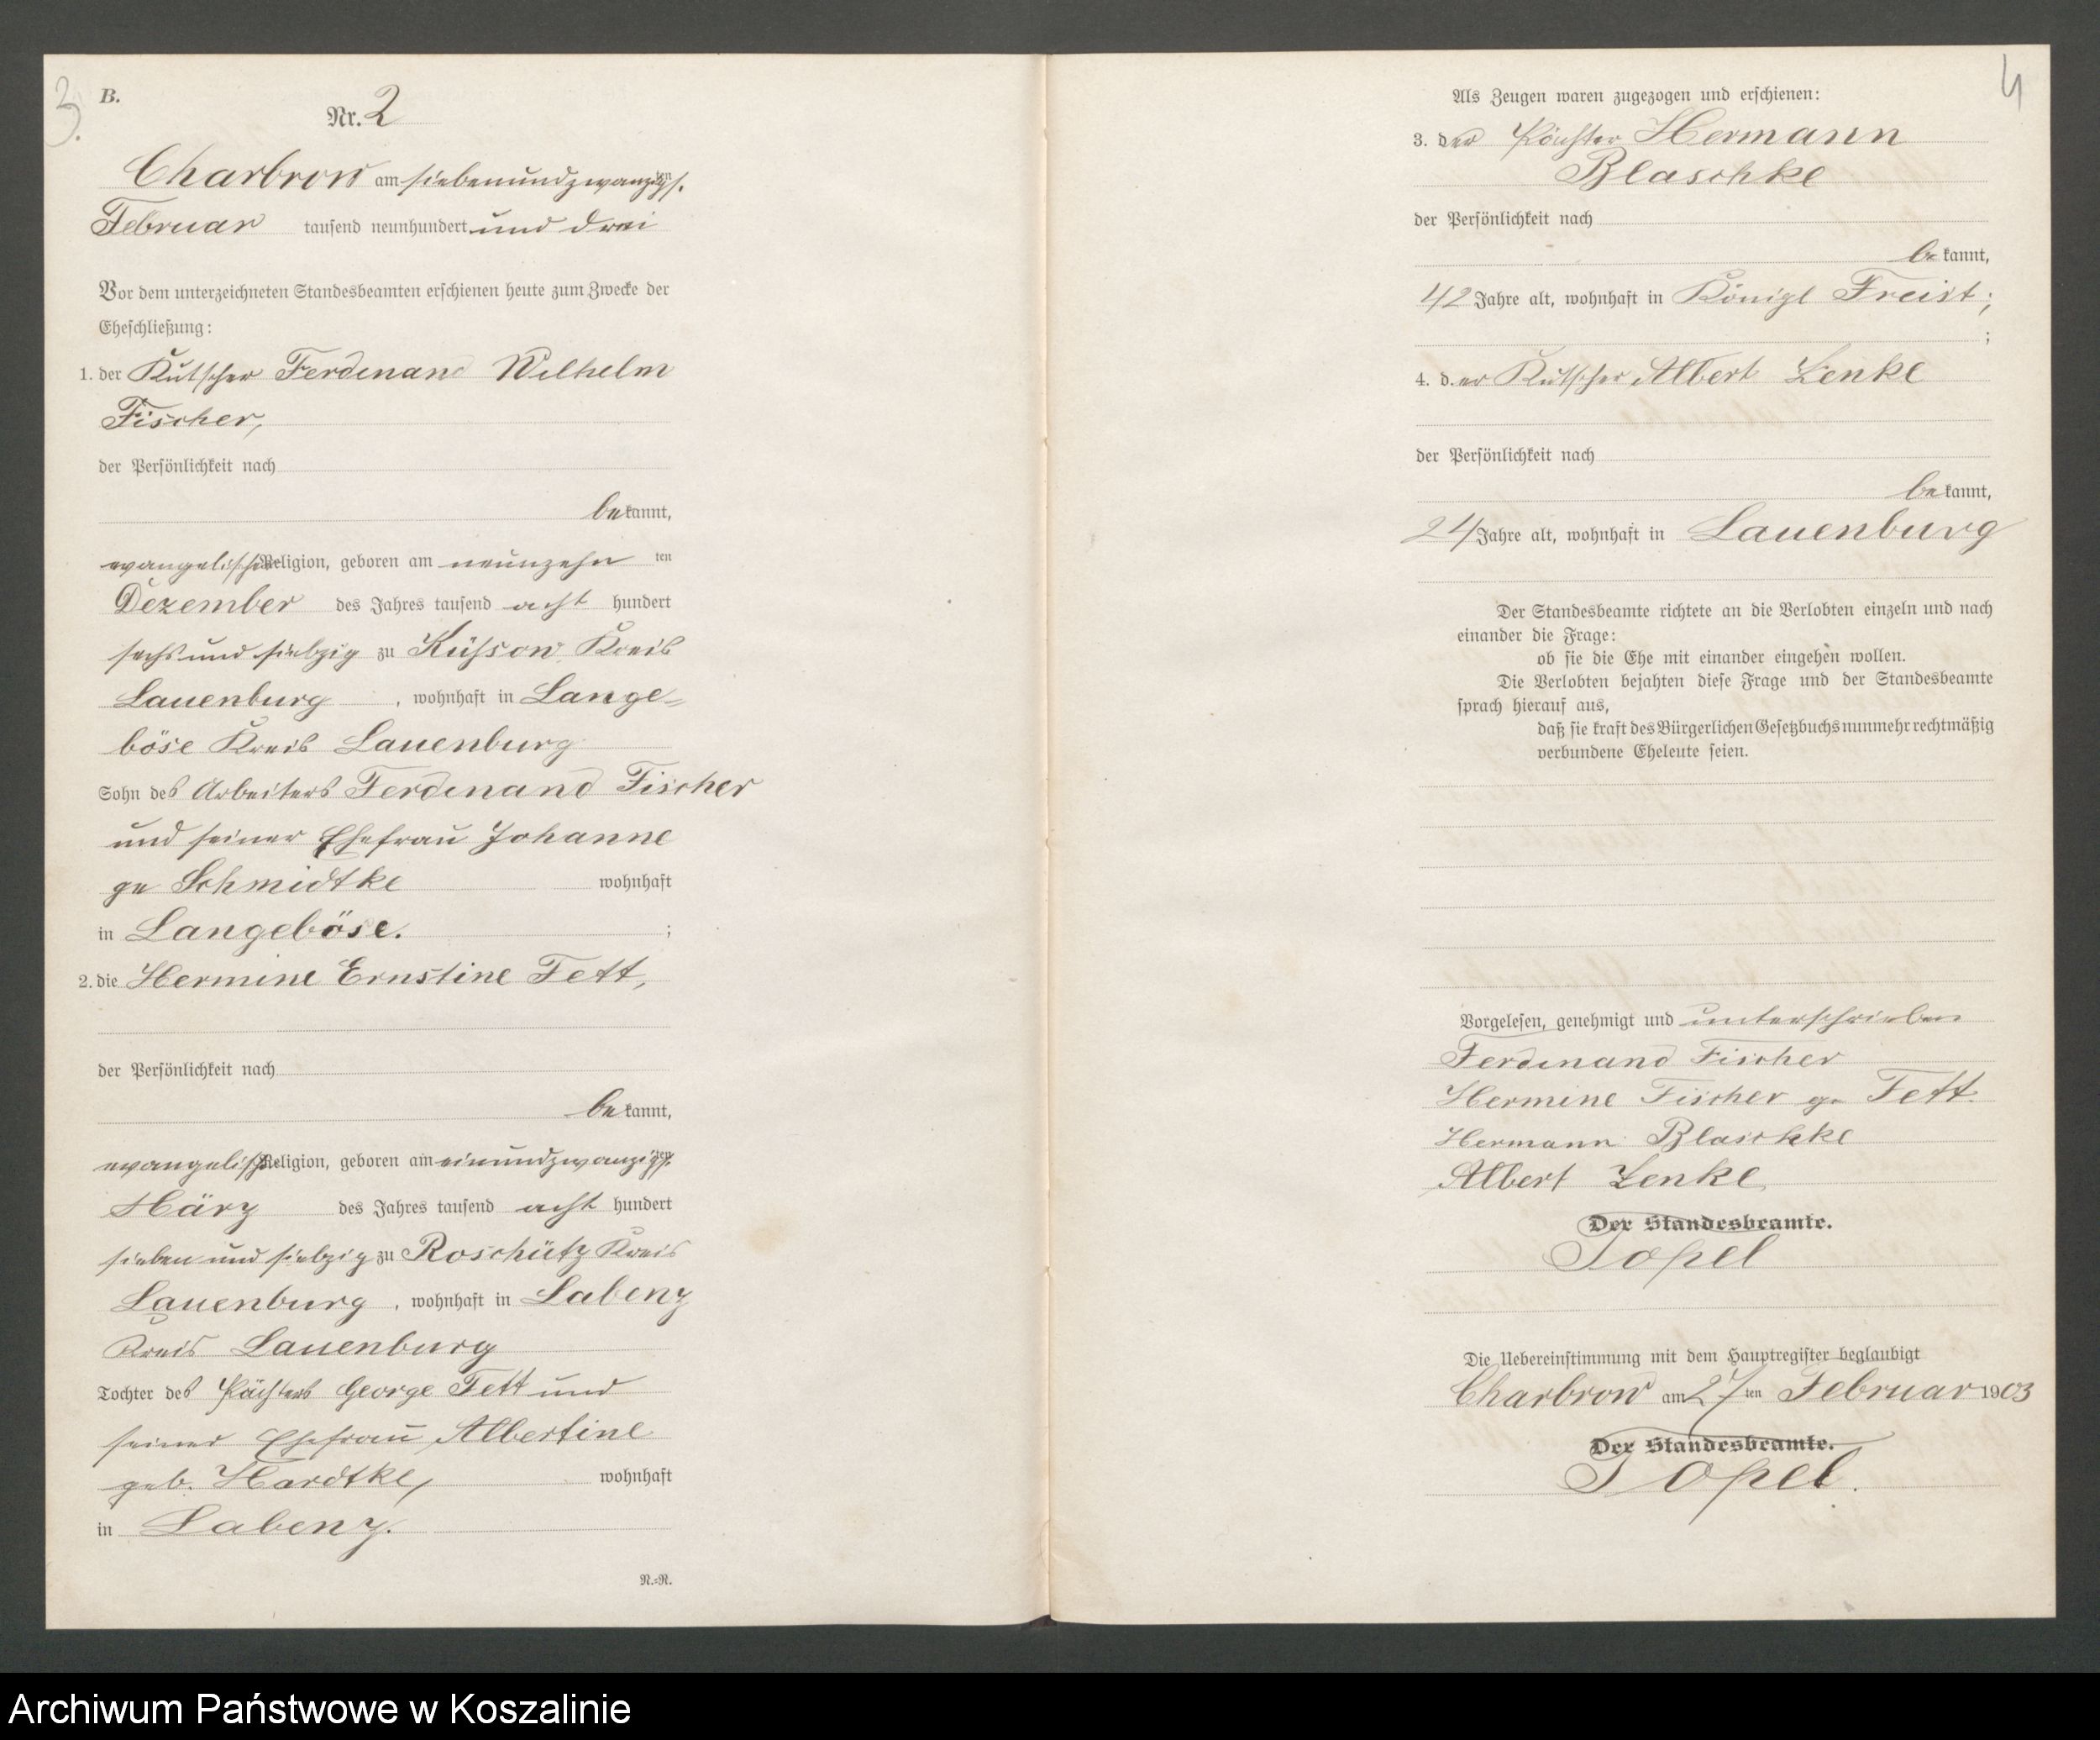 3.
B.
Nr. 2
Charbrow am siebenundzwanzigsten
Februar tausend neunhundert und drei
Vor dem unterzeichneten Standesbeamten erschienen heute zum Zwecke der
Eheschließung:
1. der Kutscher Ferdinand Wilhelm
Fischer,
der Persönlichkeit nach
bekannt,
evangelischer Religion, geboren am neunzehnten
Dezember des Jahres tausend acht hundert
sechs und siebzig zu Küssow Kreis
Lauenburg, wohnhaft in Lange-
böse Kreis Lauenburg
Sohn des Arbeiters Ferdinand Fischer
und seiner Ehefrau Johanne
ge Schmidtke wohnhaft
in Langeböse. ;
2. die Hermine Ernstine Fett,
der Persönlichkeit nach
bekannt,
evangelischer Religion, geboren am einundzwanzigsten
März des Jahres tausend acht hundert
sieben und siebzig zu Roschütz Kreis
Lauenburg, wohnhaft in Labenz
Kreis Lauenburg
Tochter des Pächters George Fett und
seiner Ehefrau Albertine
geb. Hardtke, wohnhaft
in Labenz.
N.=N.
4
Als Zeugen waren zugezogen und erschienen:
3. der Pächter Hermann
Blaschke
der Persönlichkeit nach
bekannt,
42 Jahre alt, wohnhaft in Königl Freist;
;
4. der Kutscher Albert Lenke
der Persönlichkeit nach
bekannt,
24 Jahre alt, wohnhaft in Lauenburg
Der Standesbeamte richtete an die Verlobten einzeln und nach
einander die Frage:
ob sie die Ehe mit einander eingehen wollen.
Die Verlobten bejahten diese Frage und der Standesbeamte
sprach hierauf aus,
daß sie kraft des Bürgerlichen Gesetzbuchs nunmehr rechtmäßig
verbundene Eheleute seien.
Vorgelesen, genehmigt und unterschrieben
Ferdinand Fischer
Hermine Fischer ge Fett.
Hermann Blaschke
Albert Lenke
Der Standesbeamte.
Topel
Die Uebereinstimmung mit dem Hauptregister beglaubigt
Charbrow am 27ten Februar 1903
Der Standesbeamte.
Topel.
Archiwum Państwowe w Koszalinie